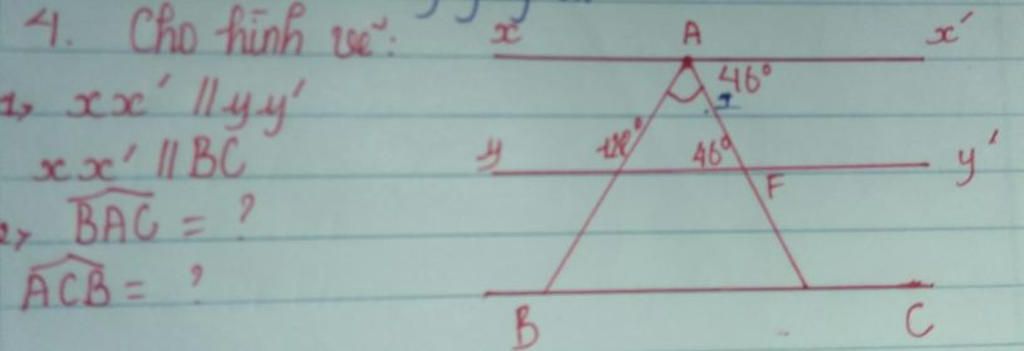 4. Cho hình vẽ:
1, xx' // yy'
xx' // BC
2, BAC = ?
ACB = ?
x A x'
46°
y 46° y'
F
B C